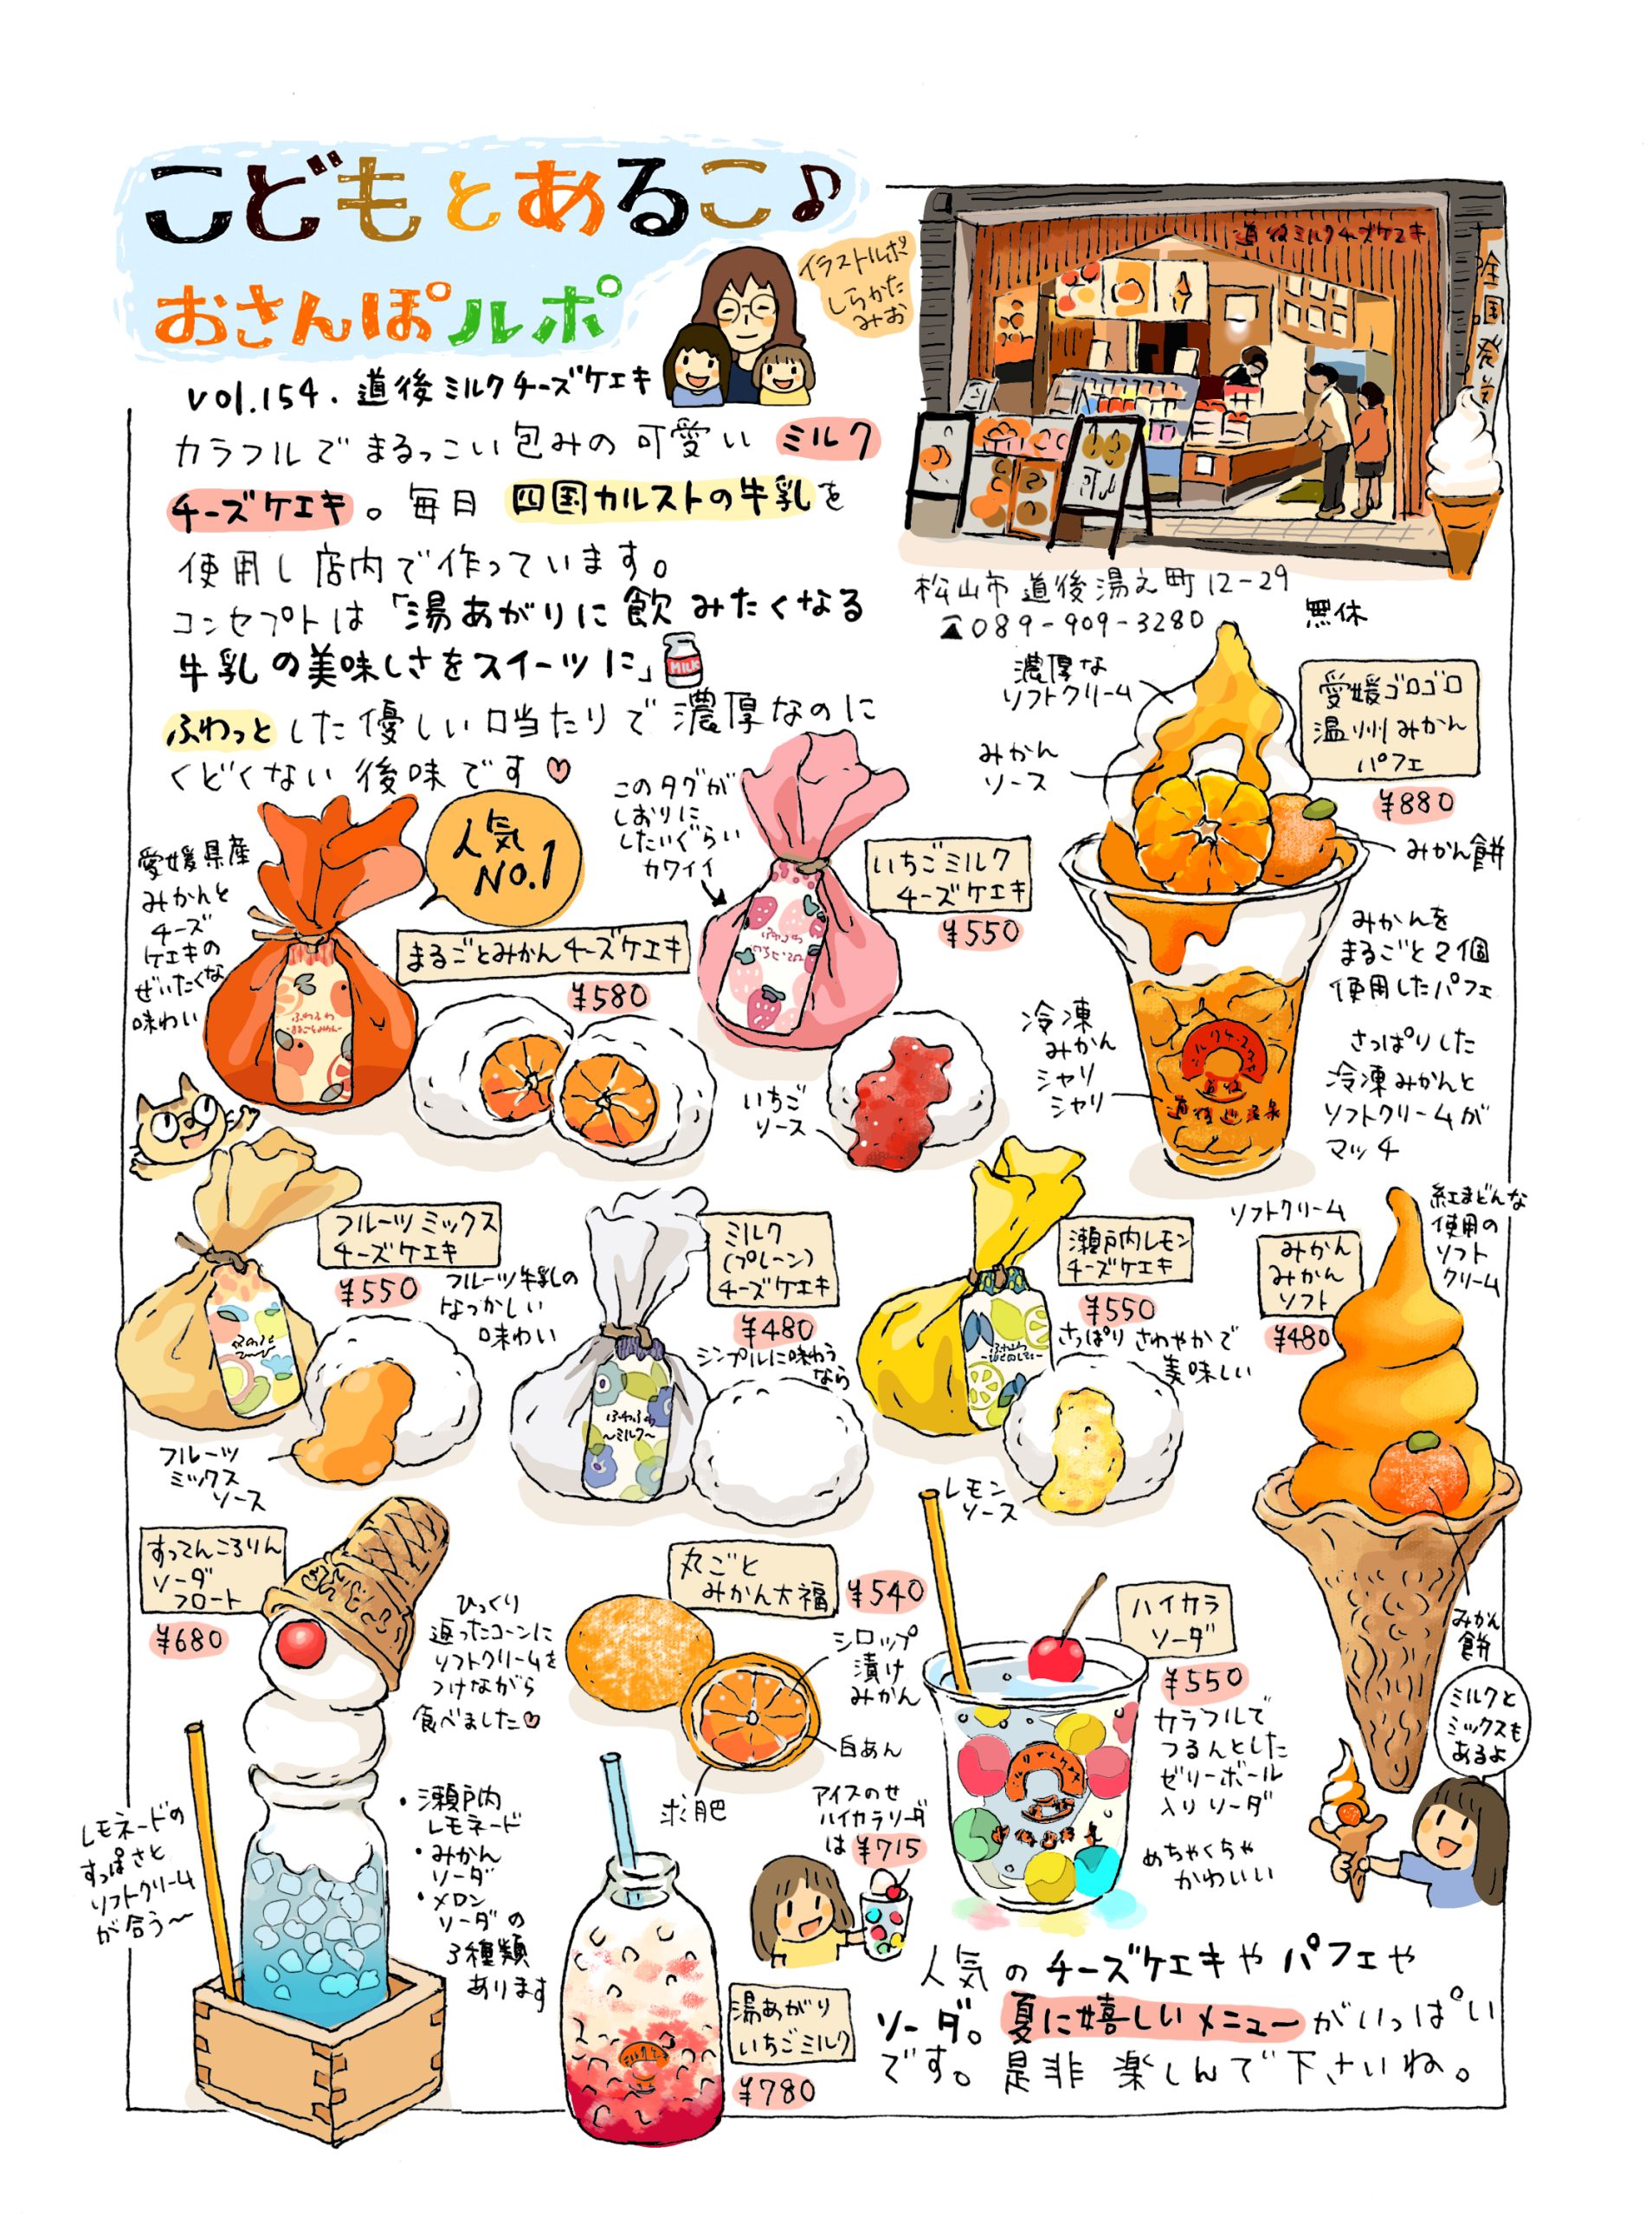 こどもとあるこ♪
おさんぽルポ
イラストルポ
しらかた
みお
vol.154. 道後ミルクチーズケエキ
カラフルでまるっこい包みの可愛いミルク
チーズケエキ。毎日 四国カルストの牛乳を
使用し店内で作っています。
コンセプトは「湯あがりに飲みたくなる
牛乳の美味しさをスイーツに」
MILK
ふわっとした優しい口当たりで濃厚なのに
くどくない後味です♡
道後ミルクチーズケエキ
松山市道後湯之町12-29
☎089-909-3280
無休
濃厚な
ソフトクリーム
みかん
ソース
愛媛ゴロゴロ
温州みかん
パフェ
¥880
みかん餅
みかんを
まるごと2個
使用したパフェ
さっぱりした
冷凍みかんと
ソフトクリームが
マッチ
冷凍
みかん
シャリ
シャリ
愛媛県産
みかんと
チーズ
ケエキの
ぜいたくな
味わい
人気
NO.1
まるごとみかんチーズケエキ
¥580
このタグが
しおりに
したいぐらい
カワイイ
いちごミルク
チーズケエキ
¥550
いちご
ソース
フルーツミックス
チーズケエキ
¥550
フルーツ牛乳の
なつかしい
味わい
フルーツ
ミックス
ソース
ミルク
(プレーン)
チーズケエキ
¥480
シンプルに味わう
なら
ふわふわ
~ミルク~
瀬戸内レモン
チーズケエキ
¥550
さっぱりさわやかで
美味しい
レモン
ソース
ソフトクリーム
みかん
みかん
ソフト
¥480
紅まどんな
使用の
ソフト
クリーム
みかん
餅
ミルクと
ミックスも
あるよ
すってんころりん
ソーダ
フロート
¥680
ひっくり
返ったコーンに
ソフトクリームを
つけながら
食べました♡
レモネードの
すっぱさと
ソフトクリーム
が合う〜
・瀬戸内
レモネード
・みかん
ソーダ
・メロン
ソーダの
3種類
あります
丸ごと
みかん大福
¥540
シロップ
漬け
みかん
白あん
求肥
ハイカラ
ソーダ
¥550
カラフルで
つるんとした
ゼリーボール
入りソーダ
めちゃくちゃ
かわいい
アイスのせ
ハイカラソーダ
は¥715
湯あがり
いちごミルク
¥780
人気のチーズケエキやパフェや
ソーダ。夏に嬉しいメニューがいっぱい
です。是非楽しんで下さいね。